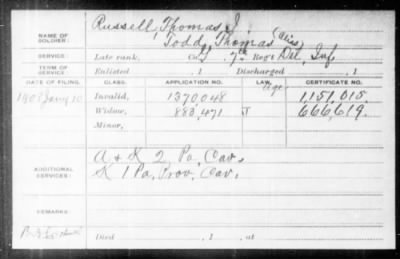 Russell, Thomas J.
NAME OF SOLDIER: Todd, Thomas (Alias)
SERVICE: Late rank, Co. 7th Reg't Del. Inf.
TERM OF SERVICE: Enlisted , 1 Discharged , 1
DATE OF FILING. CLASS. APPLICATION NO. LAW. CERTIFICATE NO.
Age
1908 Jany 10 Invalid, 1370,048 1,151,015.
Widow, 883,471 J 666,619.
Minor,
ADDITIONAL SERVICES: A & K 2 Pa. Cav.
K 1 Pa. Prov. Cav.
REMARKS:
Died , 1 , at